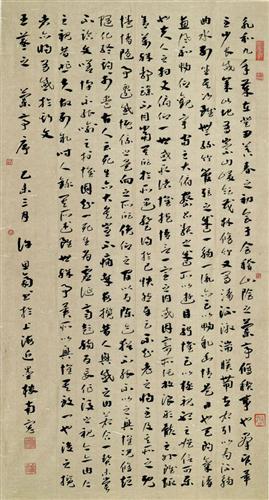 永和九年歲在癸丑暮春之初會于會稽山陰之蘭亭修稧事也群賢畢
至少長咸集此地有崇山峻領茂林修竹又有清流激湍映帶左右引以為流觴
曲水列坐其次雖無絲竹管弦之盛一觴一詠亦足以暢敘幽情是日也天朗氣清
惠風和暢仰觀宇宙之大俯察品類之盛所以遊目騁懷足以極視聽之娛信可樂
也夫人之相與俯仰一世或取諸懷抱悟言一室之內或因寄所託放浪形骸之外雖趣
舍萬殊靜躁不同當其欣於所遇暫得於己快然自足不知老之將至及其所之既
惓情隨事遷感慨係之矣向之所欣俛仰之間以為陳跡猶不能不以之興懷況修短
隨化終期於盡古人云死生亦大矣豈不痛哉每攬昔人興感之由若合一契未嘗不臨
文嗟悼不能喻之於懷固知一死生為虛誕齊彭殤為妄作後之視今亦由今
之視昔悲夫故列敘時人錄其所述雖世殊事異所以興懷其致一也後之攬
者亦將有感於斯文
王羲之蘭亭序 乙未三月 許思菊書於上海近樓南窗